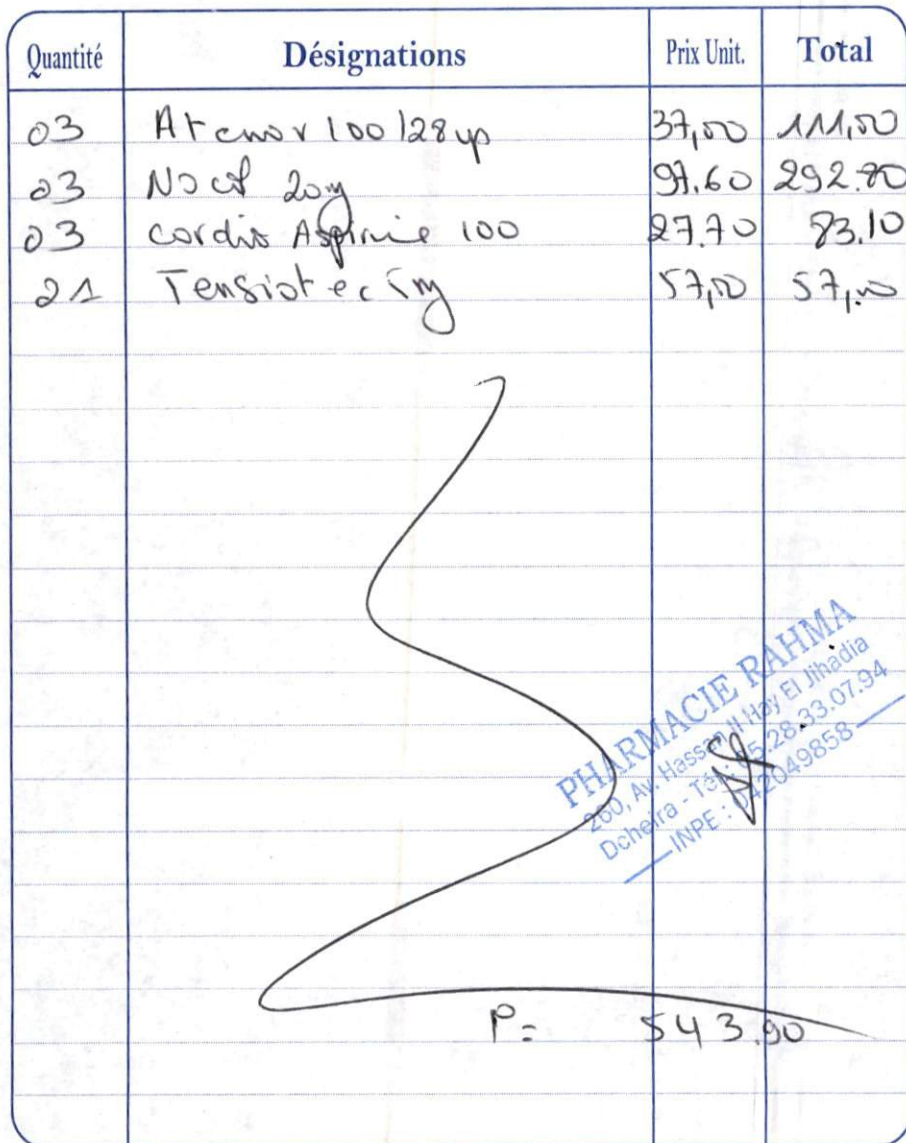 Quantité Désignations Prix Unit. Total
03 Atenor 100/28 cp 37,00 111,00
03 Noct 20mg 97.60 292.80
03 cardio Aspirine 100 27.70 83.10
01 Tensiotec 5mg 57,00 57,00
PHARMACIE RAHMA
260, Av. Hassan II Hay El Jihadia
Dcheira - Tél : 05.28.33.07.94
INPE : 042049858
P= 543.90